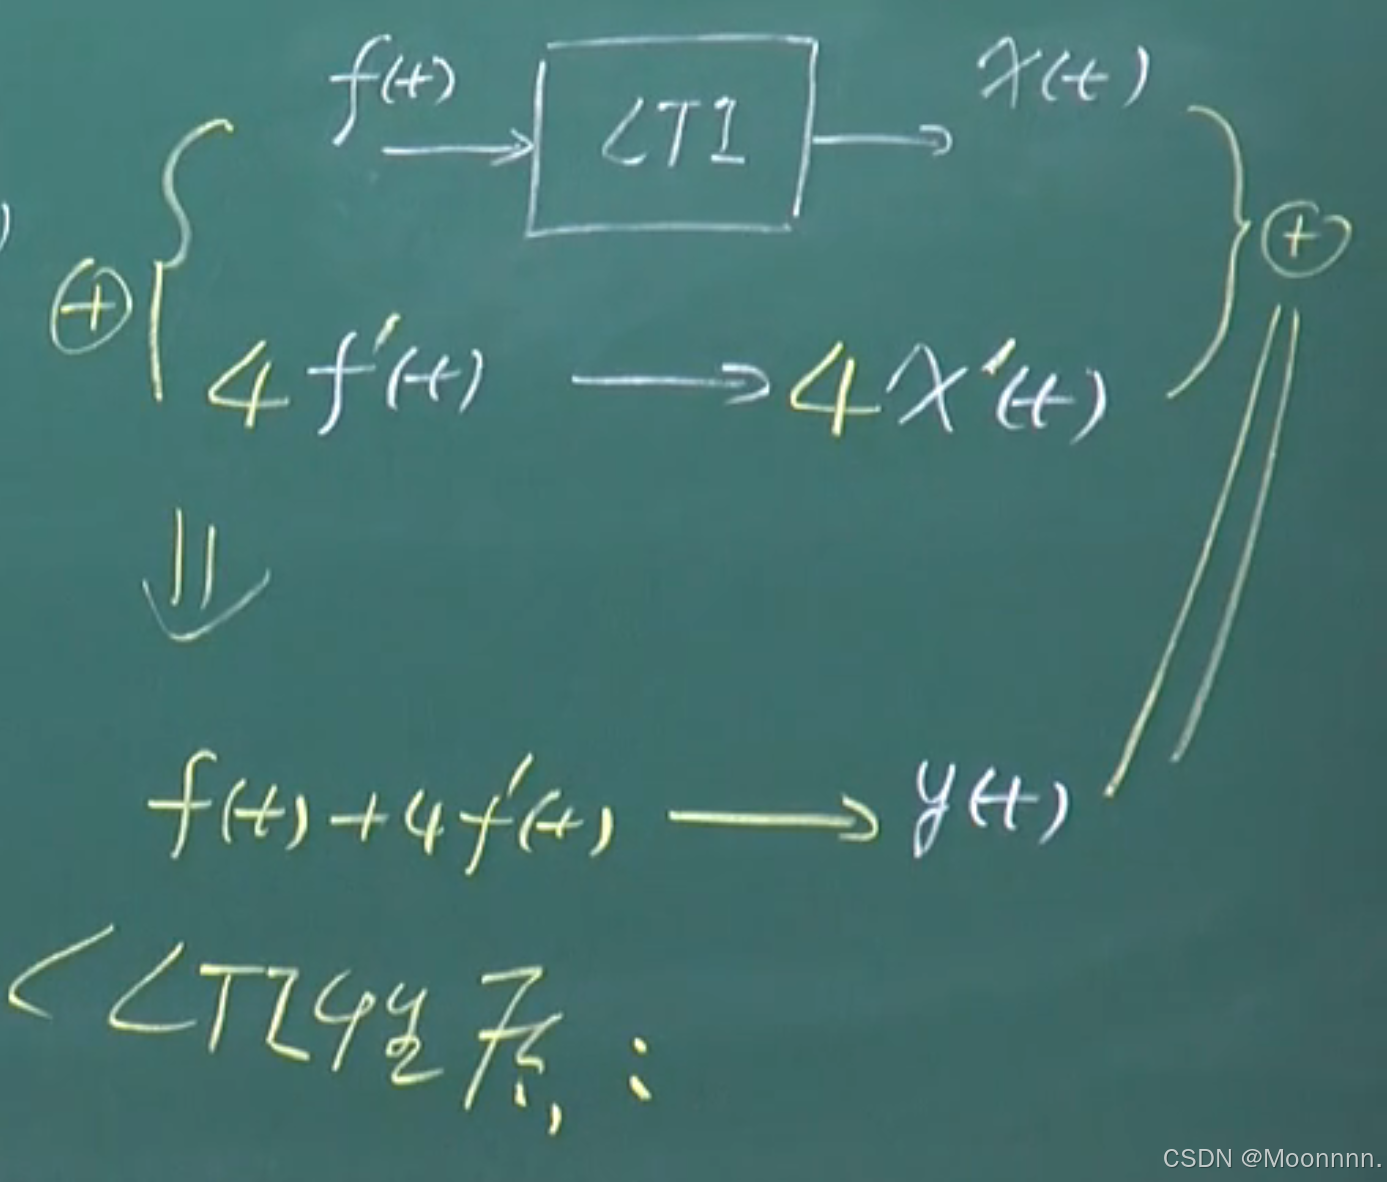 f(t) → LTI → x(t)
⊕ ⊕
4f'(t) → 4x'(t)
⇓
f(t)+4f'(t) → y(t)
< LTI性质:
CSDN @Moonnnn.